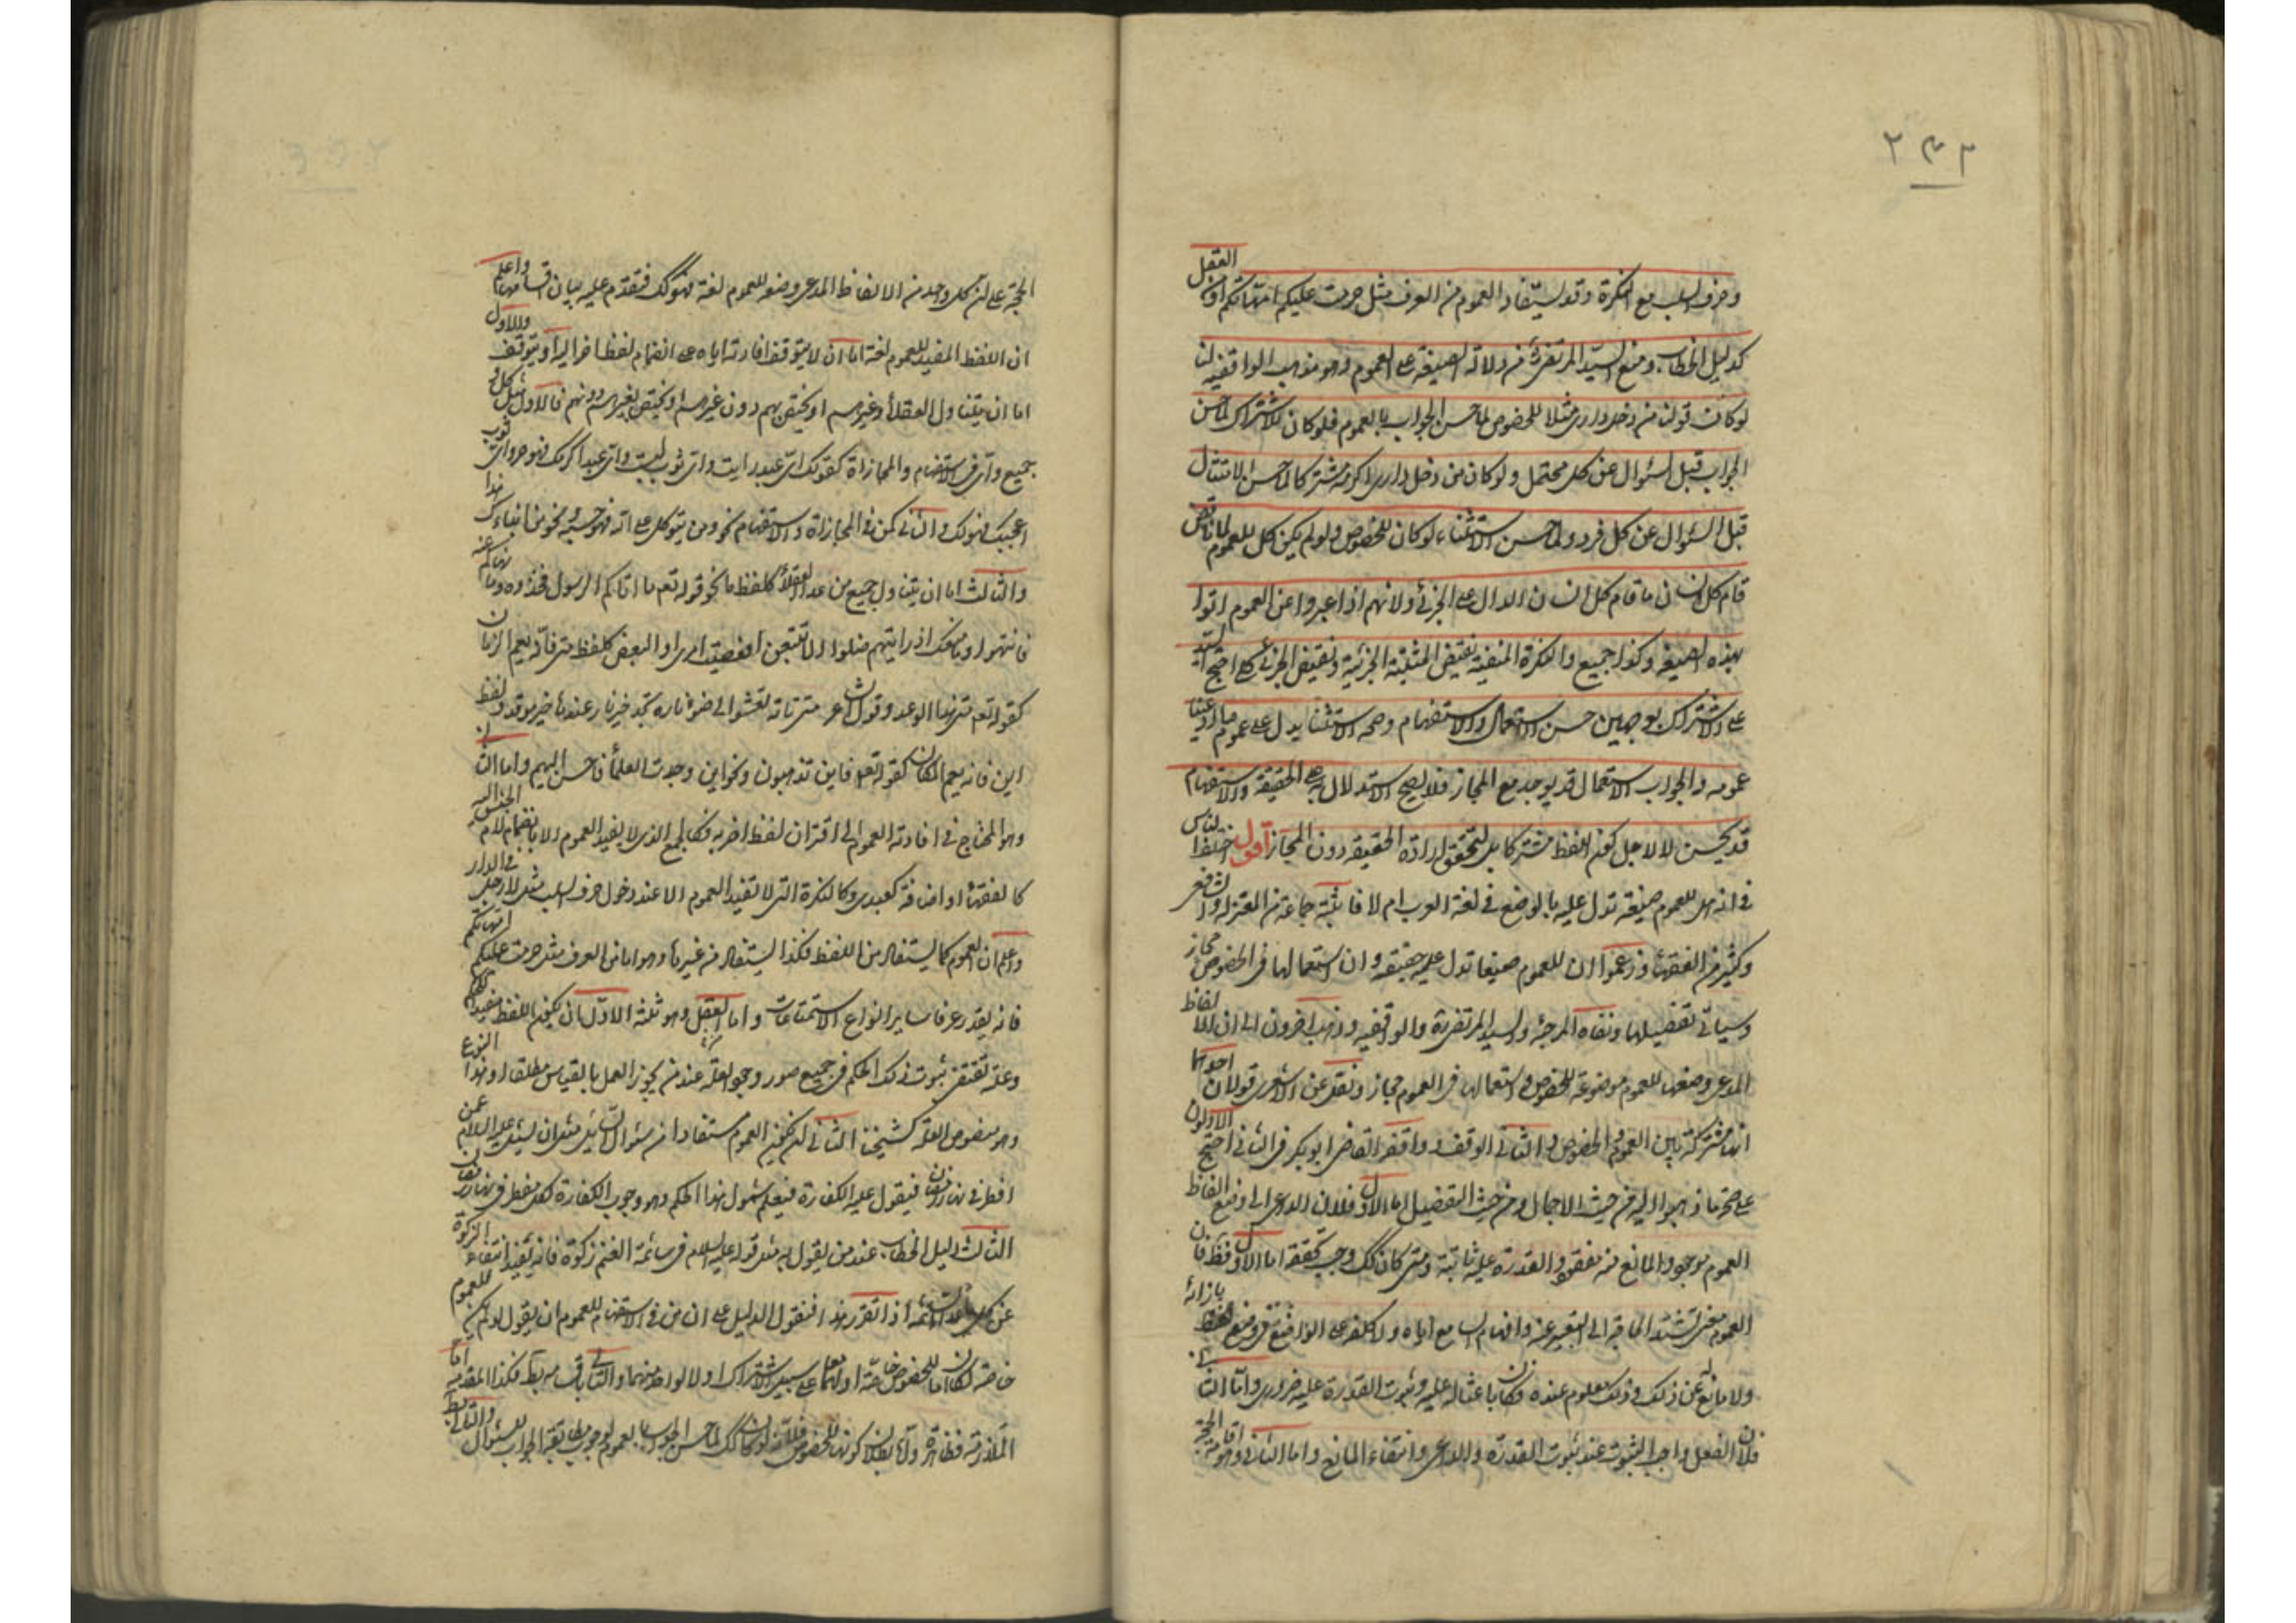 ٢٣٢
وحرف السلب مع النكرة وقد يستفاد العموم من العرف مثل حرمت عليكم امهاتكم او من العقل
كدليل الخطاب ومنع السيد المرتضى من دلالة الصيغة على العموم وهو مذهب الواقفية لنا
لو كان قولنا من دخل داري مثلا للخصوص لما حسن الجواب بالعموم فلو كان للاشتراك لما حسن
الجواب قبل السؤال عن كل محتمل ولو كان من دخل داري اكرمه مشتركا لما حسن الامتثال
قبل السؤال عن كل فرد ولما حسن الاستثناء لو كان للخصوص ولو لم يكن كل للعموم لما ناقض
قام كل انسان ما قام كل انسان الدال على الجزئي ولانهم اذا عبروا عن العموم اتوا
بهذه الصيغة وكذا جميع والنكرة المنفية نقيض المثبتة الجزئية ونقيض الجزئي كلي احتج السيد
على الاشتراك بوجهين حسن الاستعمال والاستفهام وصحة الاستثناء يدل على عموم ما ادعينا
عمومه والجواب الاستعمال قد يوجد مع المجاز فلا يصح الاستدلال به على الحقيقة والاستفهام
قد يحسن لا لاجل كون اللفظ مشتركا بل لتحقق ارادة الحقيقة دون المجاز اقول اختلف الناس
في انه هل للعموم صيغة تدل عليه بالوضع في لغة العرب ام لا فاثبته جماعة من المعتزلة والشافعي
وكثير من الفقهاء وزعموا ان للعموم صيغا تدل عليه حقيقة وان استعمالها في الخصوص مجاز
وسيأتي تفصيلها ونفاه المرجئة والسيد المرتضى والواقفية وذهب اخرون الى ان الالفاظ
المدعى وضعها للعموم موضوعة للخصوص واستعمالها في العموم مجاز ونقل عن الاشعري قولان احدهما
انها مشتركة بين العموم والخصوص والثاني الوقف ووافقه القاضي ابو بكر في الثاني احتج الاولون
على صحة ما ذهبوا اليه من حيث الاجمال ومن حيث التفصيل اما الاول فلان الداعي الى وضع الفاظ
العموم موجود والمانع منه مفقود والقدرة عليه ثابتة ومتى كان كك وجب تحققه اما الاول فظ فان
العموم معنى تشتد الحاجة الى التعبير عنه وافهام السامع اياه ولا كلفة على الواضع في وضع لفظ بازائه
ولا مانع له عن ذلك وذلك معلوم عنده فكان باعثا له عليه وثبوت القدرة عليه ضروري واما الثاني
فلان الفعل واجب الثبوت عند ثبوت القدرة والداعي وانتفاء المانع واما الثاني وهو اقامة الحجة
الحجة على ان كل واحد من الالفاظ المدعى وضعه للعموم لغة فهو كك فنقدم عليه بيان اقسامها واعلم
ان اللفظ المفيد للعموم لغة اما ان لا يتوقف افادته اياه على انضمام لفظ اخر اليه او يتوقف والاول
اما ان يتناول العقلاء وغيرهم او يختص بهم دون غيرهم او يختص بغيرهم دونهم فالاول مثل كل و
جميع واي في الاستفهام والمجازاة كقولك اي عبد رايت واي ثوب لبست واي عبد اكرمك فهو حر واي ثوب
اعجبك فهو لك والثاني كمن في المجازاة والاستفهام نحو ومن يتوكل على الله فهو حسبه ونحو من انباك هذا
والثالث اما ان يتناول جميع من عدا العقلاء كلفظ ما نحو قوله تعم ما اتاكم الرسول فخذوه وما نهاكم عنه
فانتهوا وما منعك اذ رايتهم ضلوا الا تتبعن افعصيت امري او البعض كلفظ متى فانه يعم الزمان
كقوله تعم متى هذا الوعد وقول الشاعر متى تاته تعشوا الى ضوء ناره تجد خير نار عندها خير موقد ولفظ
اين فانه يعم المكان كقوله تعم فاين تذهبون ونحو اين وجدت العلماء فاحسن اليهم واما الثاني
وهو المحتاج في افادته العموم الى اقتران لفظ اخر به فكالجمع الذي لا يفيد العموم الا بانضمام لام الجنس اليه
كالفقهاء او اضافة كعبيدي وكالنكرة التي لا تفيد العموم الا عند دخول حرف السلب مثل لا رجل في الدار
واعلم ان العموم كما يستفاد من اللفظ فكذا يستفاد من غيره وهو اما من العرف مثل حرمت عليكم امهاتكم
فانه يفيد عرفا ساير انواع الاستمتاعات واما العقل وهو ثلثة الاول ان يكون اللفظ مفيدا للحكم
وعلته تقتضي ثبوت ذلك الحكم في جميع صور وجود العلة عند من يجوز العمل بالقياس مطلقا او هذا النوع
وهو منصوص العلة كشيخنا الثاني ان يكون العموم مستفادا من سؤال السائل مثل ان يسئل عليه السلام عمن
افطر في نهار رمضان فيقول عليه الكفارة فيعلم شمول هذا الحكم وهو وجوب الكفارة لكل مفطر في نهار رمضان
الثالث دليل الخطاب عند من يقول به مثل قوله عليه السلام في سائمة الغنم زكوة فانه يفيد انتفاء الزكوة
عن كل ما عدا السائمة اذا تقرر هذا فنقول الدليل على ان من في الاستفهام للعموم ان يقول لو لم يكن للعموم
خاصة لكان اما للخصوص خاصة او لهما على سبيل الاشتراك او لا لواحد منهما والتالي باقسامه بط فكذا المقدم اما
الملازمة فظاهرة واما بطلان كونها للخصوص فلانه لو كان كك لما حسن الجواب بالعموم لوجوب مطابقة الجواب للسؤال والتالي بط